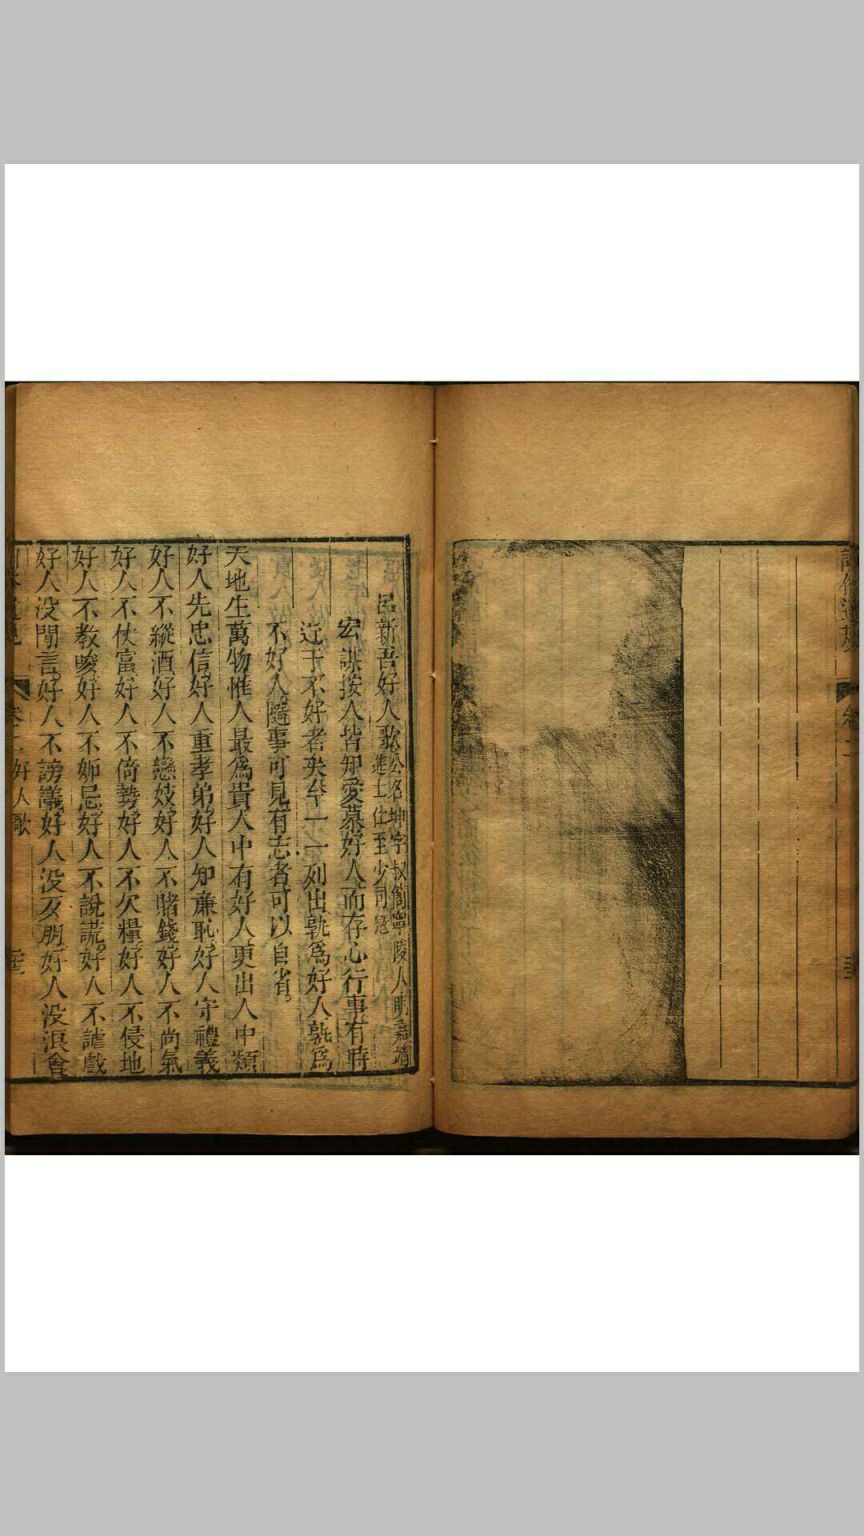 卷二
呂新吾好人歌公名坤字叔簡寧陵人明嘉靖
進士仕至少司寇
宏謀按人皆知愛慕好人而存心行事有時
近于不好者矣至一一列出孰爲好人孰爲
不好人隨事可見有志者可以自省。
天地生萬物惟人最爲貴人中有好人更出人中類
好人先忠信好人重孝弟好人知廉恥好人守禮義
好人不縱酒好人不戀妓好人不賭錢好人不尚氣
好人不仗富好人不倚勢好人不欠糧好人不侵地
好人不教唆好人不妬忌好人不說謊好人不謔戲
好人没閒言好人不謗議好人没歹朋好人没浪會
卷二 好人歌